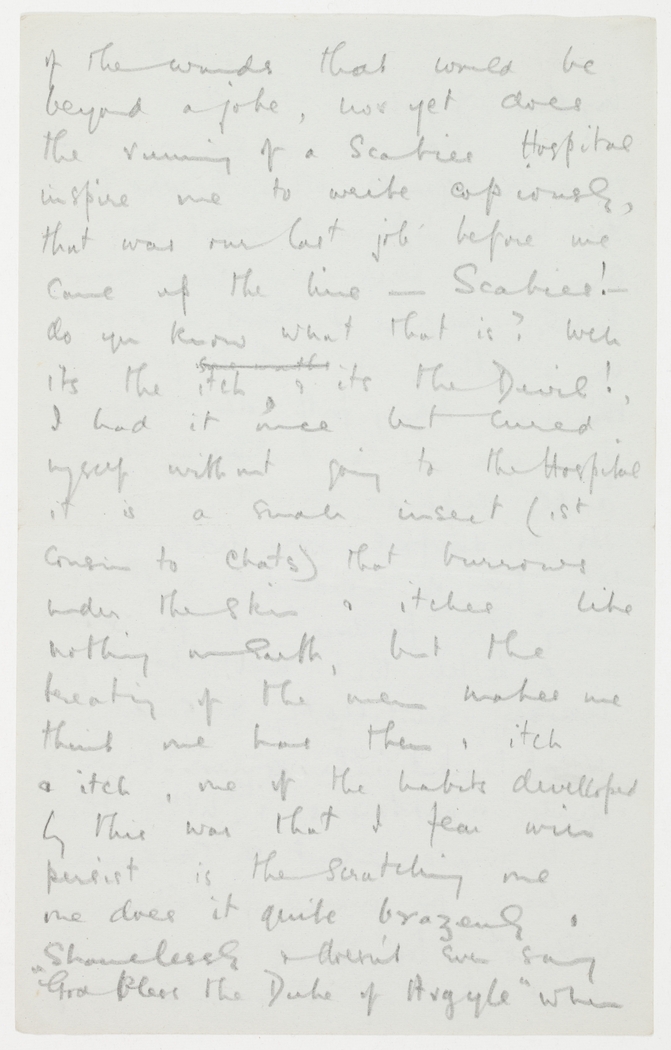 of the wounds that would be
beyond a joke, nor yet does
the running of a Scabies Hospital
inspire me to write copiously,
that was our last job before we
came up the line — Scabies! —
do you know what that is? Well
its the itch, & its the Devil!,
I had it once but cured
myself without going to the Hospital
it is a small insect (1st
Cousin to Chats) that burrows
under the skin & itches like
nothing on Earth, but the
treating of the men makes one
think one has them & itch
& itch, one of the habits develloped
by this war that I fear will
persist is the scratching one
one does it quite brazenly &
Shamelessly & doesn't even say
"God Bless the Duke of Argyle" when